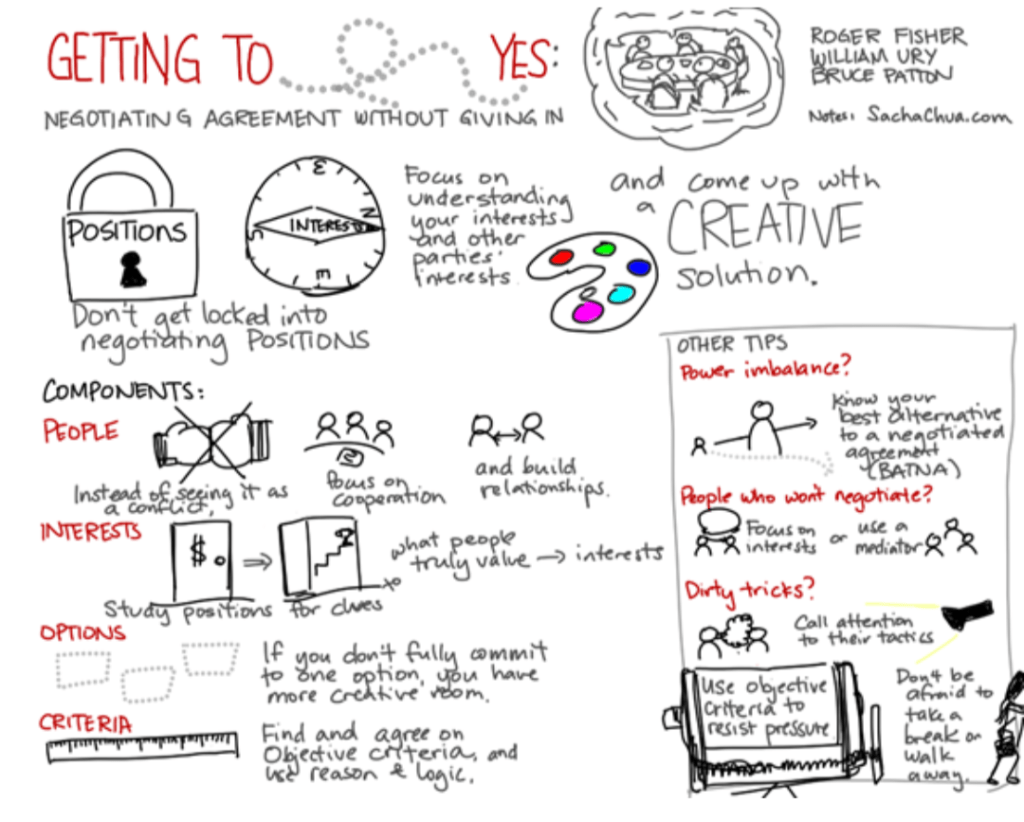 GETTING TO YES:
NEGOTIATING AGREEMENT WITHOUT GIVING IN
ROGER FISHER
WILLIAM URY
BRUCE PATTON
Notes: SachaChua.com
POSITIONS
Don't get locked into
negotiating POSITIONS
INTERESTS
Focus on
understanding
your interests
and other
parties'
interests
and come up with
a CREATIVE
solution.
COMPONENTS:
PEOPLE
Instead of seeing it as
a conflict,
focus on
cooperation
and build
relationships.
INTERESTS
$
Study positions for clues
to
what people
truly value → interests
OPTIONS
If you don't fully commit
to one option, you have
more creative room.
CRITERIA
Find and agree on
Objective criteria, and
use reason & logic.
OTHER TIPS
Power imbalance?
Know your
best alternative
to a negotiated
agreement
(BATNA)
People who won't negotiate?
Focus on
interests
or
use a
mediator
Dirty tricks?
Call attention
to their tactics
Use objective
criteria to
resist pressure
Don't be
afraid to
take a
break or
walk
away.